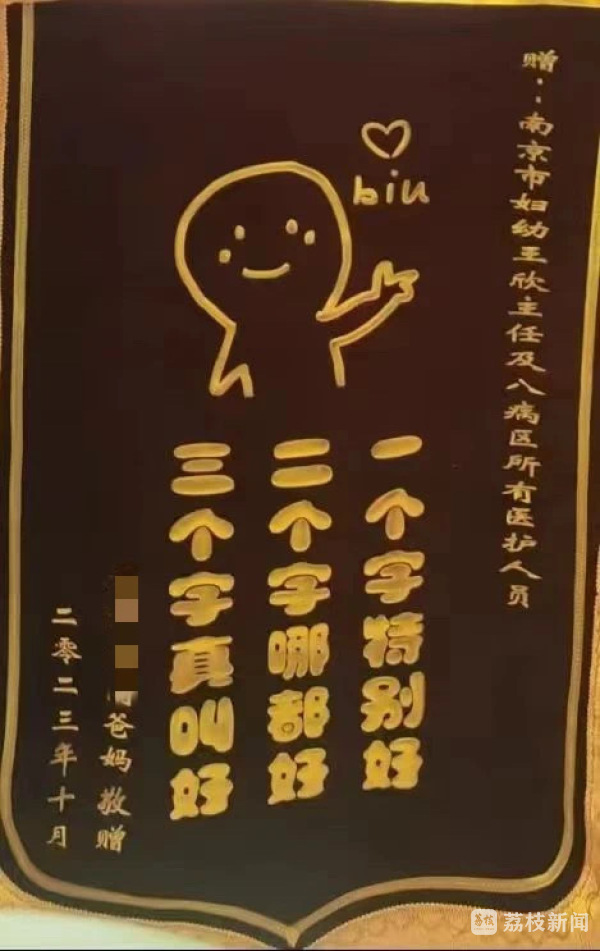 赠：南京市妇幼王欣主任及八病区所有医护人员
biu
一个字特别好
二个字哪都好
三个字真叫好
爸妈敬赠
二零二三年十月
荔枝新闻